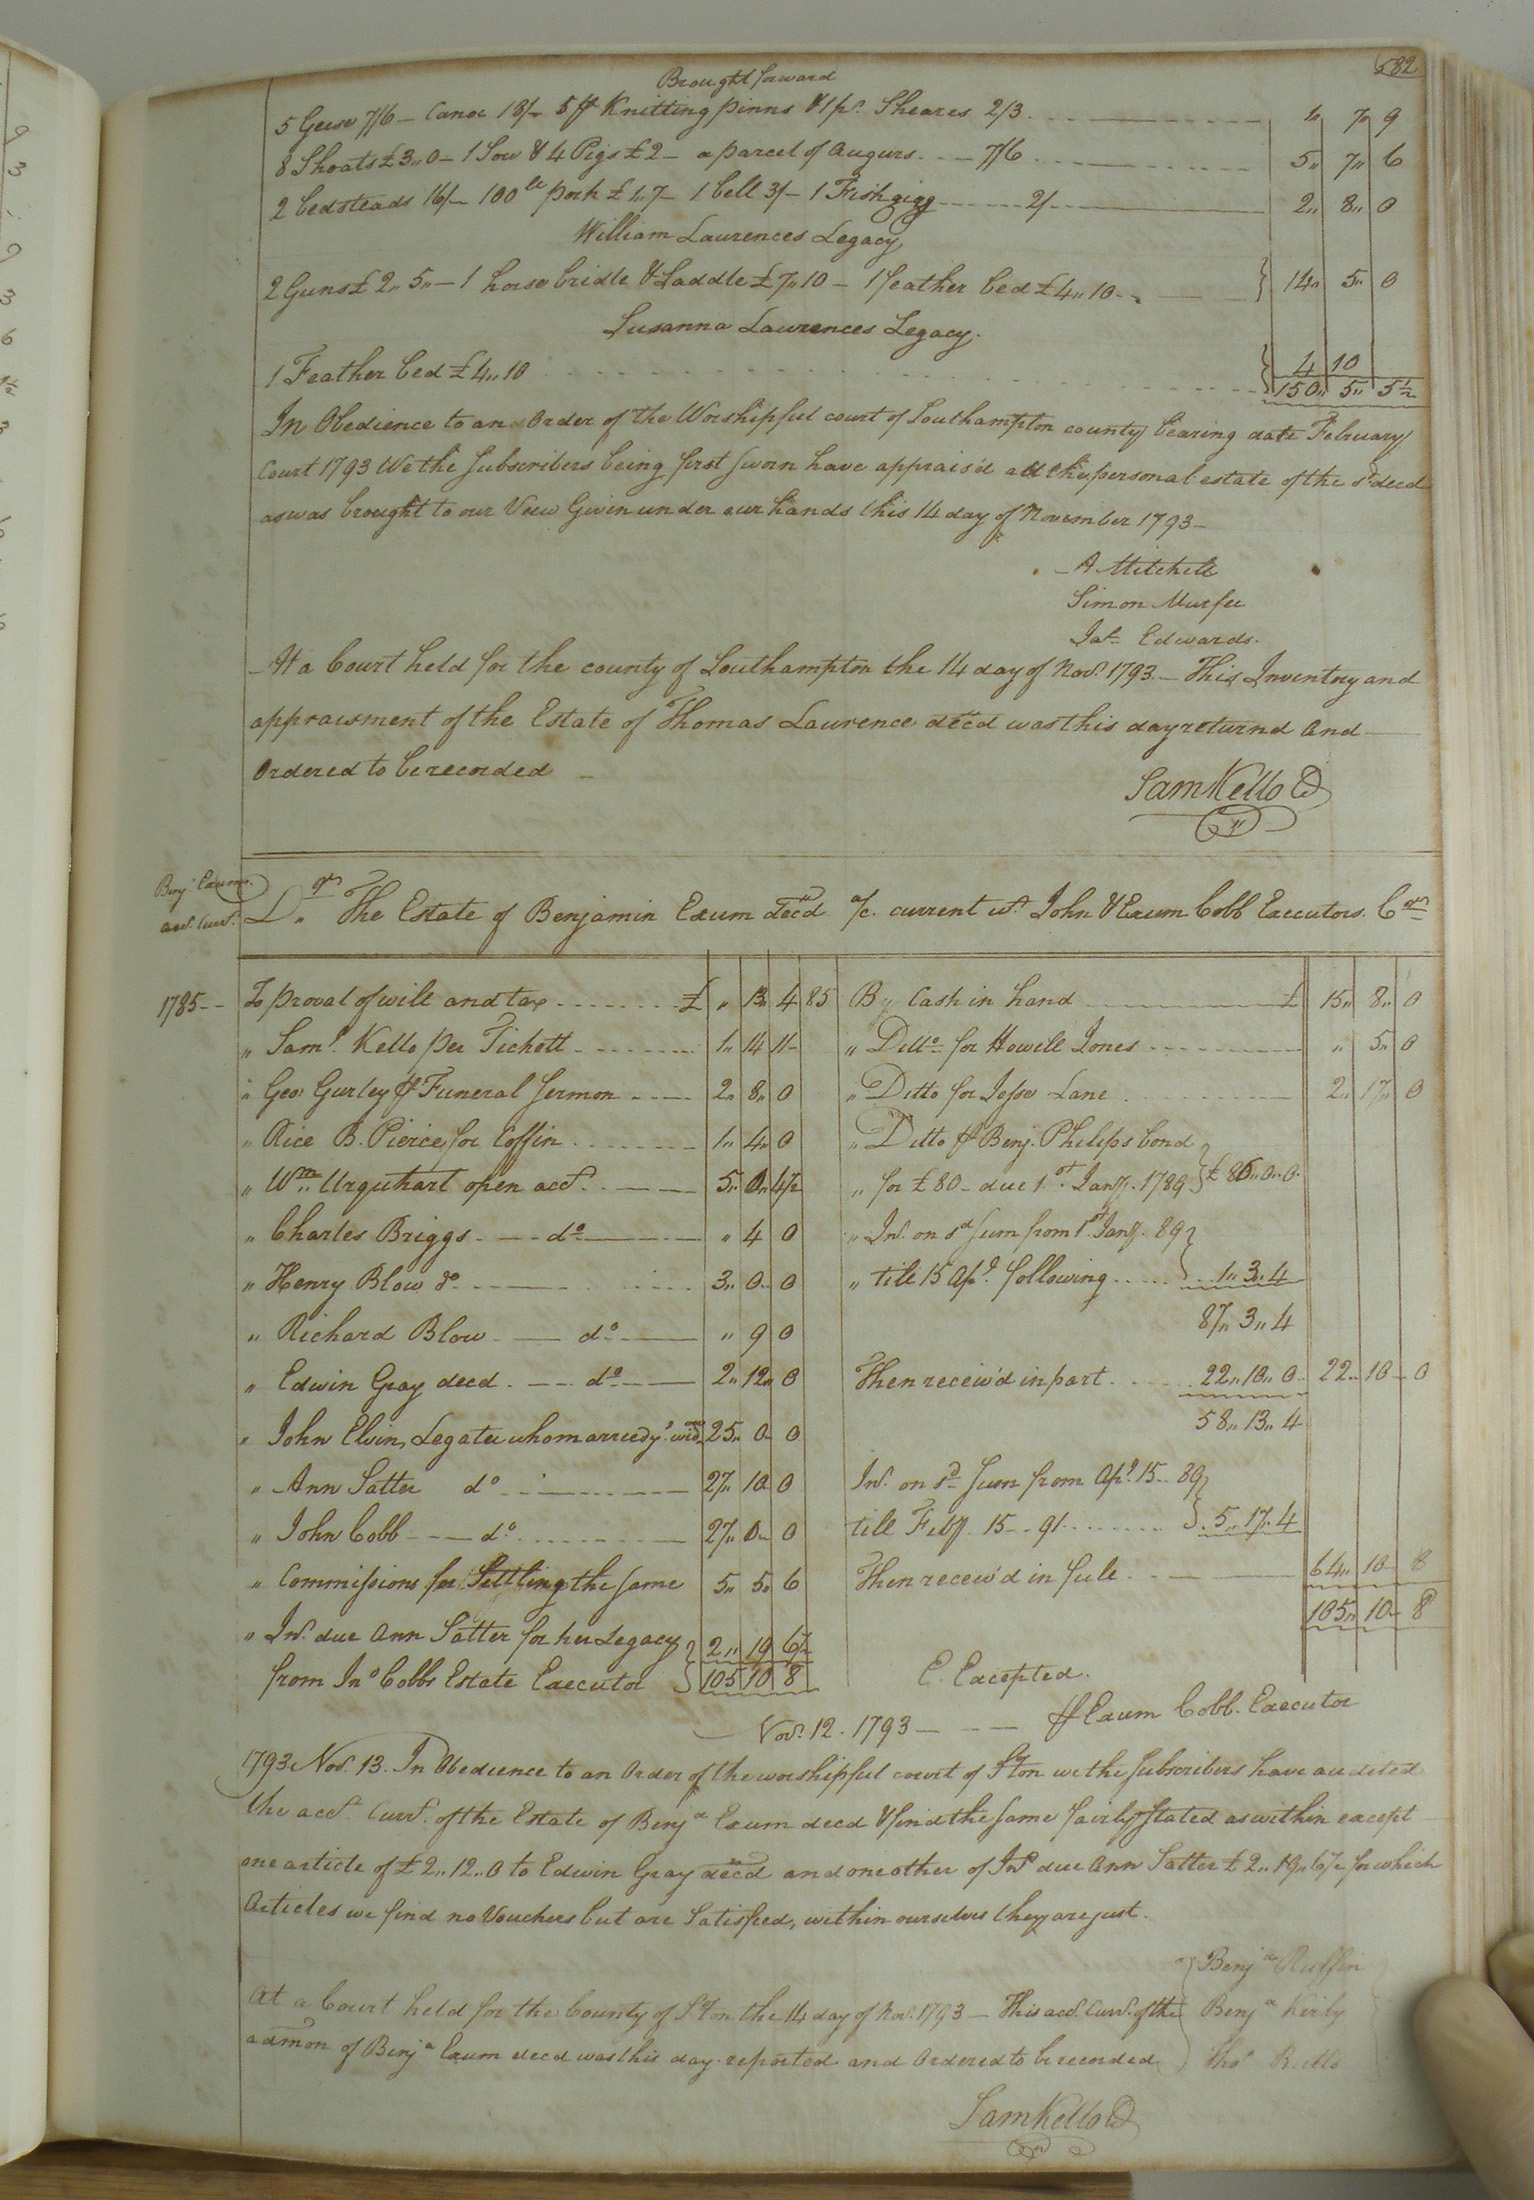 582
Brought forward
5 Geese 7/6 – Canoe 18/– 5 pr Knitting pinns & 1 pr. Sheares 2/3 1,, 7,, 9
8 Shoats £3,,0 – 1 Sow & 4 Pigs £2 – a parcel of Augurs 7/6 5,, 7,, 6
2 bedsteads 16/– 100 lb pork £1,,7 – 1 bell 3/– 1 Fish gigg 2/ 2,, 8,, 0
William Laurences Legacy
2 Guns £2,,5,, – 1 horse bridle & Saddle £7,,10 – 1 feather bed £4,,10 14,, 5,, 0
Susanna Laurences Legacy.
1 Feather bed £4,,10 4 10
150,, 5,, 5½
In Obedience to an Order of the Worshipful court of Southampton county bearing date February
Court 1793 We the Subscribers being first sworn have apprais'd all the personal estate of the sd. decd
as was brought to our View Given under our hands this 14 day of November 1793 –
A Mitchell
Simon Murfee
Jas. Edwards.
At a Court held for the county of Southampton the 14 day of Nov. 1793. – This Inventory and
appraisment of the Estate of Thomas Laurence decd was this day returnd and
Ordered to be recorded –
Sam Kello
Benj. Exums
acct. Curt.
Dr. The Estate of Benjamin Exum decd a/c. current wt. John & Exum Cobb Executors. Cr
1785 – To proval of will and tax £ ,, 13,, 4 85 By Cash in hand £ 15,, 8,, 0
,, Saml. Kello per Tickett 1,, 14 11 ,, Ditto for Howell Jones ,, 5,, 0
,, Geo: Gurley pr Funeral Sermon 2,, 8,, 0 ,, Ditto for Jesse Lane 2,, 17,, 0
,, Rice B. Pierce for Coffin 1,, 4,, 0 ,, Ditto pr Benj. Philips bond
,, Wm. Urquhart open acct. 5,, 0,, 4½ ,, for £80 – due 1st. Jany. 1789 £86,,0,,0
,, Charles Briggs do ,, 4 0 ,, Int. on sd sum from 1st Jany. 89
,, Henry Blow do 3,, 0 0 ,, till 15 Apl. following 1,,3,,4
,, Richard Blow do ,, 9 0 87,,3,,4
,, Edwin Gray decd. do 2,, 12,, 0 Then receiv'd in part 22,,10,,0 22,, 10 0
,, John Elvin, Legatee who married ye. wido 25,, 0 0 58,,13,,4
,, Ann Satter do 27,, 10 0 Int. on sd Sum from Apl. 15 – 89
,, John Cobb do 27,, 0 0 till Feby 15 – 91 5,,17,,4
,, Commissions for Settling the same 5,, 5,, 6 Then receiv'd in full 64,, 10 8
105,, 10 8
,, Int. due Ann Satter for her Legacy 2,, 19 6½
from Jno Cobbs Estate Executor 105 10 8 E. Excepted.
Nov. 12. 1793 – pr Exum Cobb. Executor
1793 Nov. 13. In Obedience to an Order of the worshipful court of Ston we the Subscribers have audited
the acct. Curt. of the Estate of Benja Exum decd & find the same fairly stated as within except
one article of £2,,12,,0 to Edwin Gray decd and one other of Int due Ann Satter £2,,19,,6½ for which
Articles we find no Vouchers but are Satisfied, within ourselves they are just.
Benja Ruffin
Benja Kirby
Thos
At a Court held for the County of Ston the 14 day of Nov. 1793 – This acct. Curt. of the
admon of Benja Exum decd was this day reported and Ordered to be recorded
Sam Kello